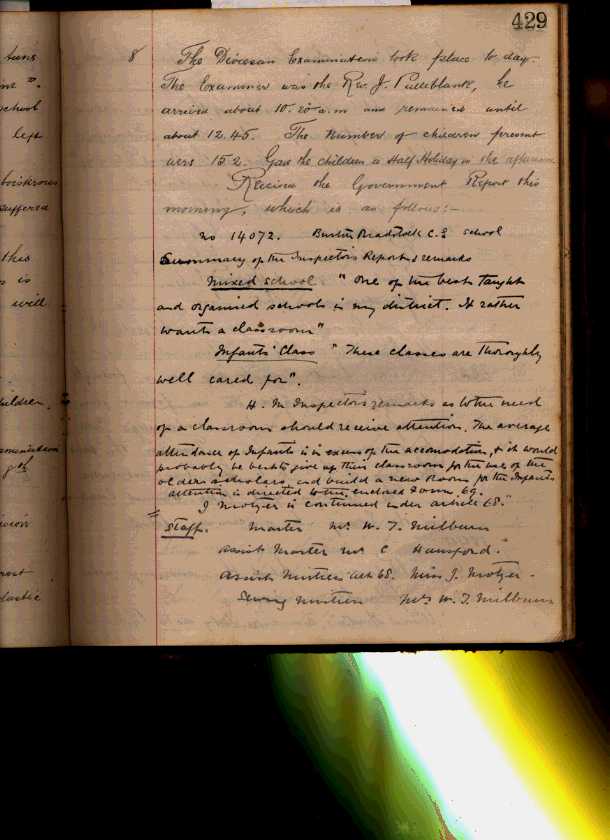 429
tians
school
left
boisterous
suffered
this
s is
will
children
9th
8 The Diocesan Examination took place to day.
The Examiner was the Rev. J. Pulleblank, he
arrived about 10.20 a.m and remained until
about 12.45. The Number of children present
were 152. Gave the children a Half Holiday in the afternoon
Received the Government Report this
morning, which is as follows:-
no 14072. Burton Bradstock C.E school
Summary of the Inspectors Report & remarks
Mixed school " One of the best taught
and organised schools in my district. It rather
wants a classroom"
Infants' Class " These classes are thoroughly
well cared for".
H. M Inspectors remarks as to the need
of a classroom should receive attention. The average
attendance of Infants is in excess of the accomodation, & it would
probably be best to give up their classroom for the use of the
older scholars and build a new Room for the Infants
attention is directed to the enclosed Form 69.
J Motzer is continued under article 68."
Staff. Master Mr W. T. Milburn
Assist Master Mr C Hansford.
Assist Mistress Art 68. Miss J. Motzer.
Sewing Mistress Mrs W. T. Milburn